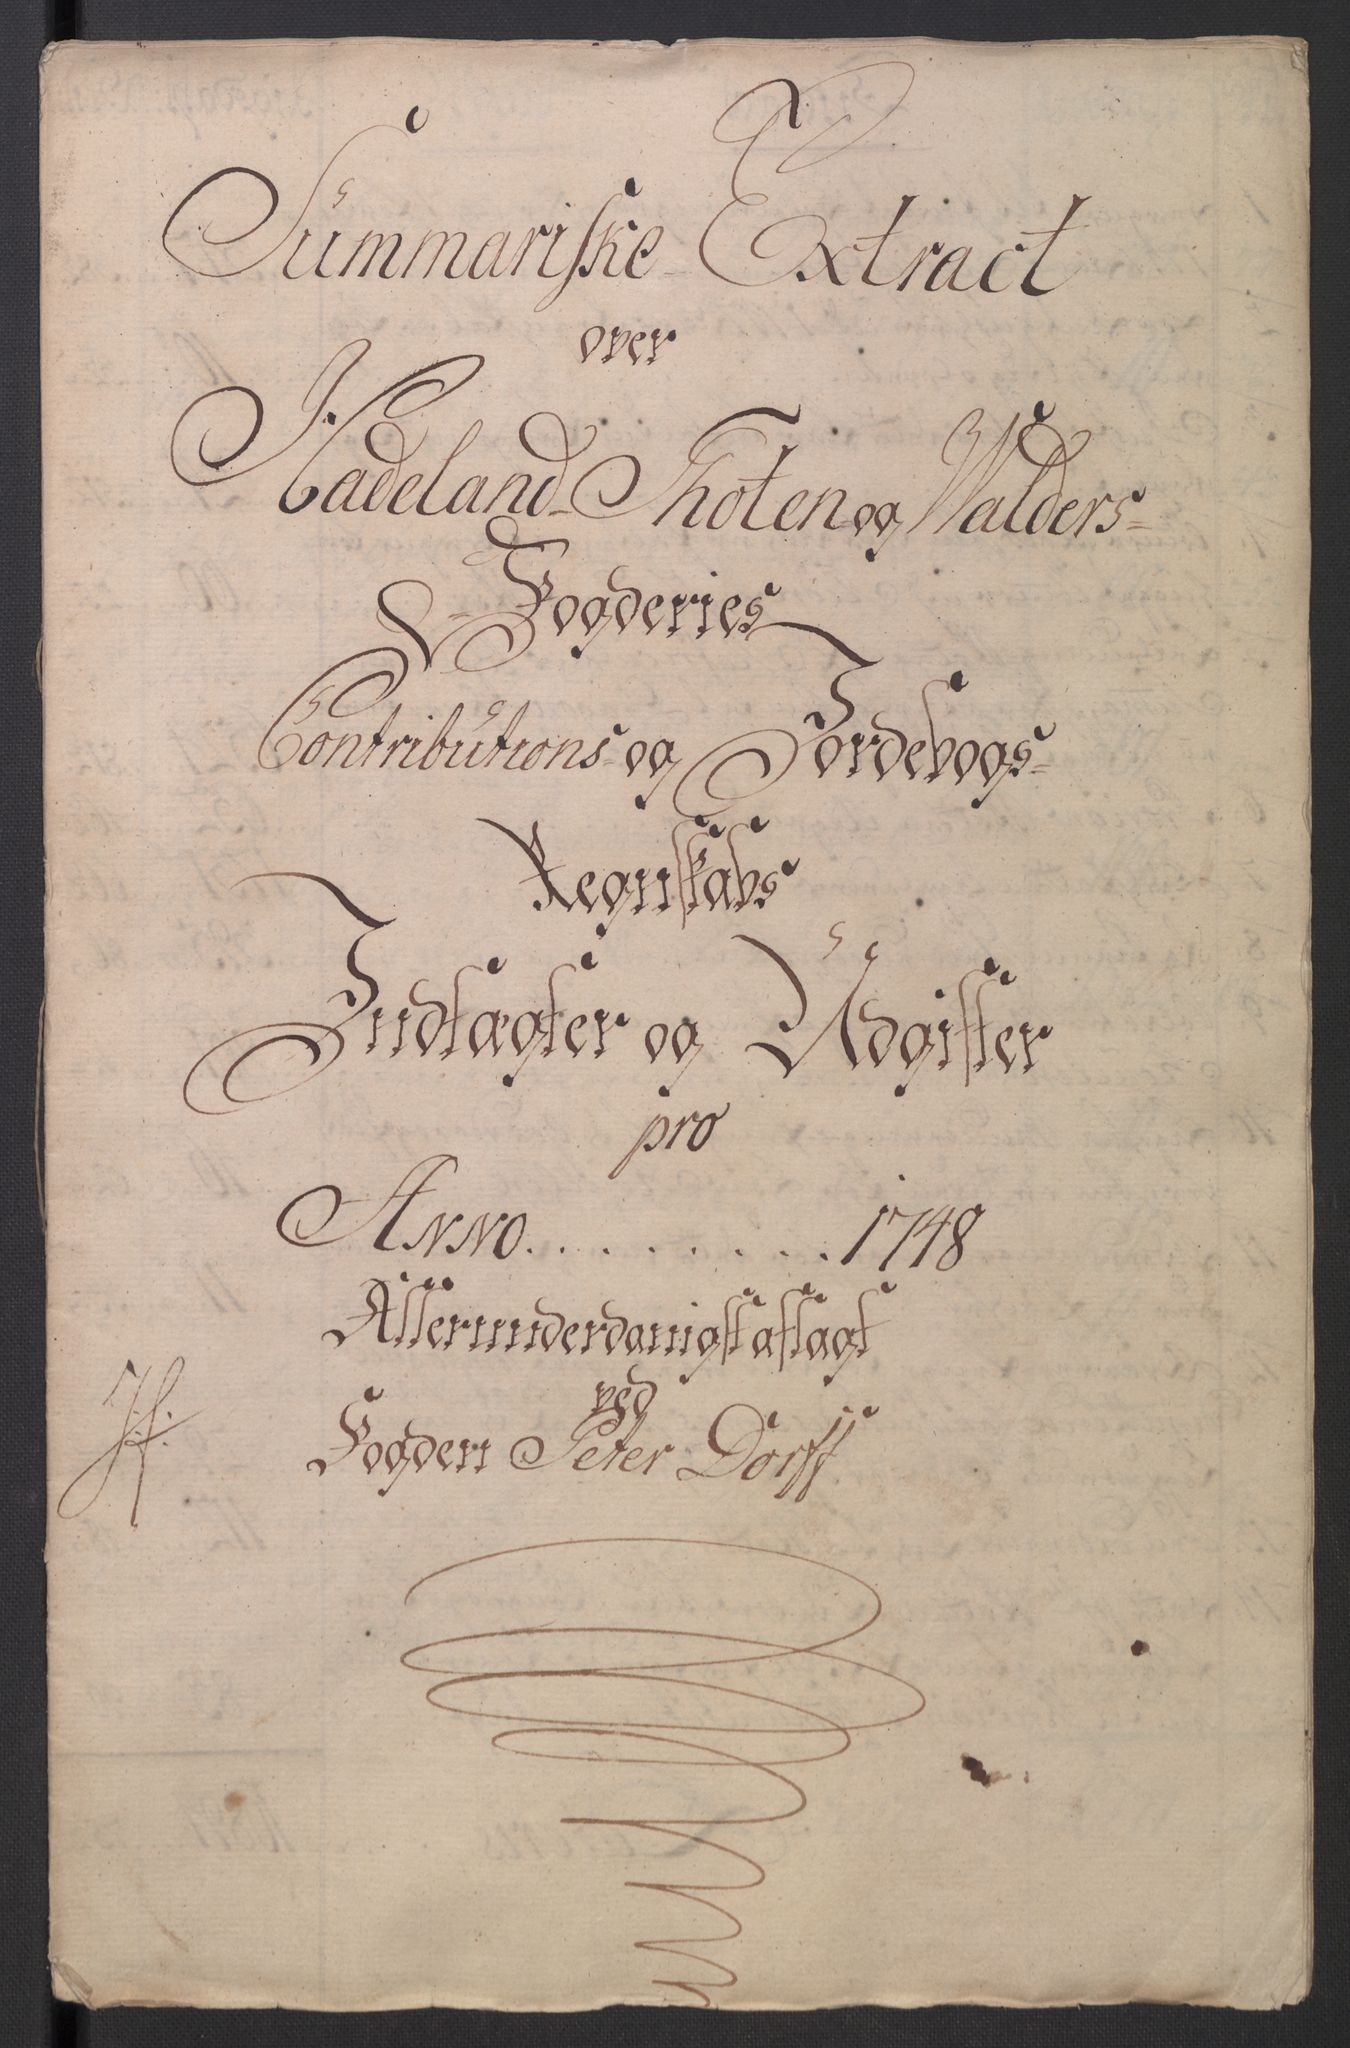 Summariske Extract
over
Hadeland Thoten og Walders
Fogderies
Contributions og Jordebogs
Regnskabs
Indtægter og Udgifter
pro
Anno . . . . . . . . . 1748
Allerunderdanigst aflagt
ved
Fogden Peter Dorff